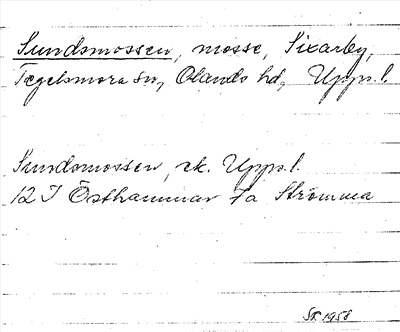 Sundsmossen, mosse, Sixarby,
Tegelsmora sn, Olands hd, Upps. l.
Sundsmossen, ek. Upps. l.
12 I Östhammar 7a Strömma
SR 1958